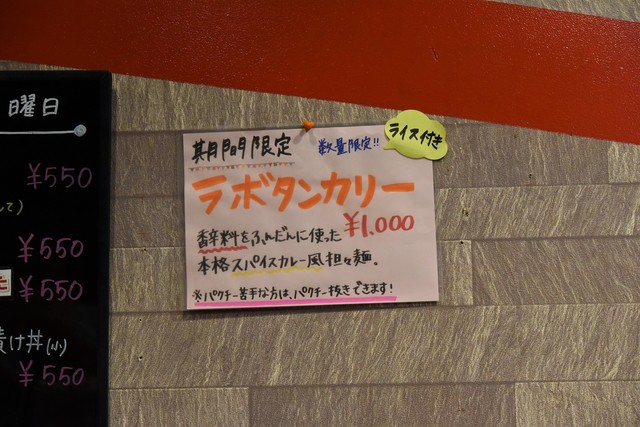 曜日
¥550
て)
¥550
た
¥550
漬け丼(小)
¥550
期間限定
数量限定!!
ライス付き
ラボタンカリー
¥1,000
香辛料をふんだんに使った
本格スパイスカレー風担々麺。
※パクチー苦手な方は、パクチー抜きできます!